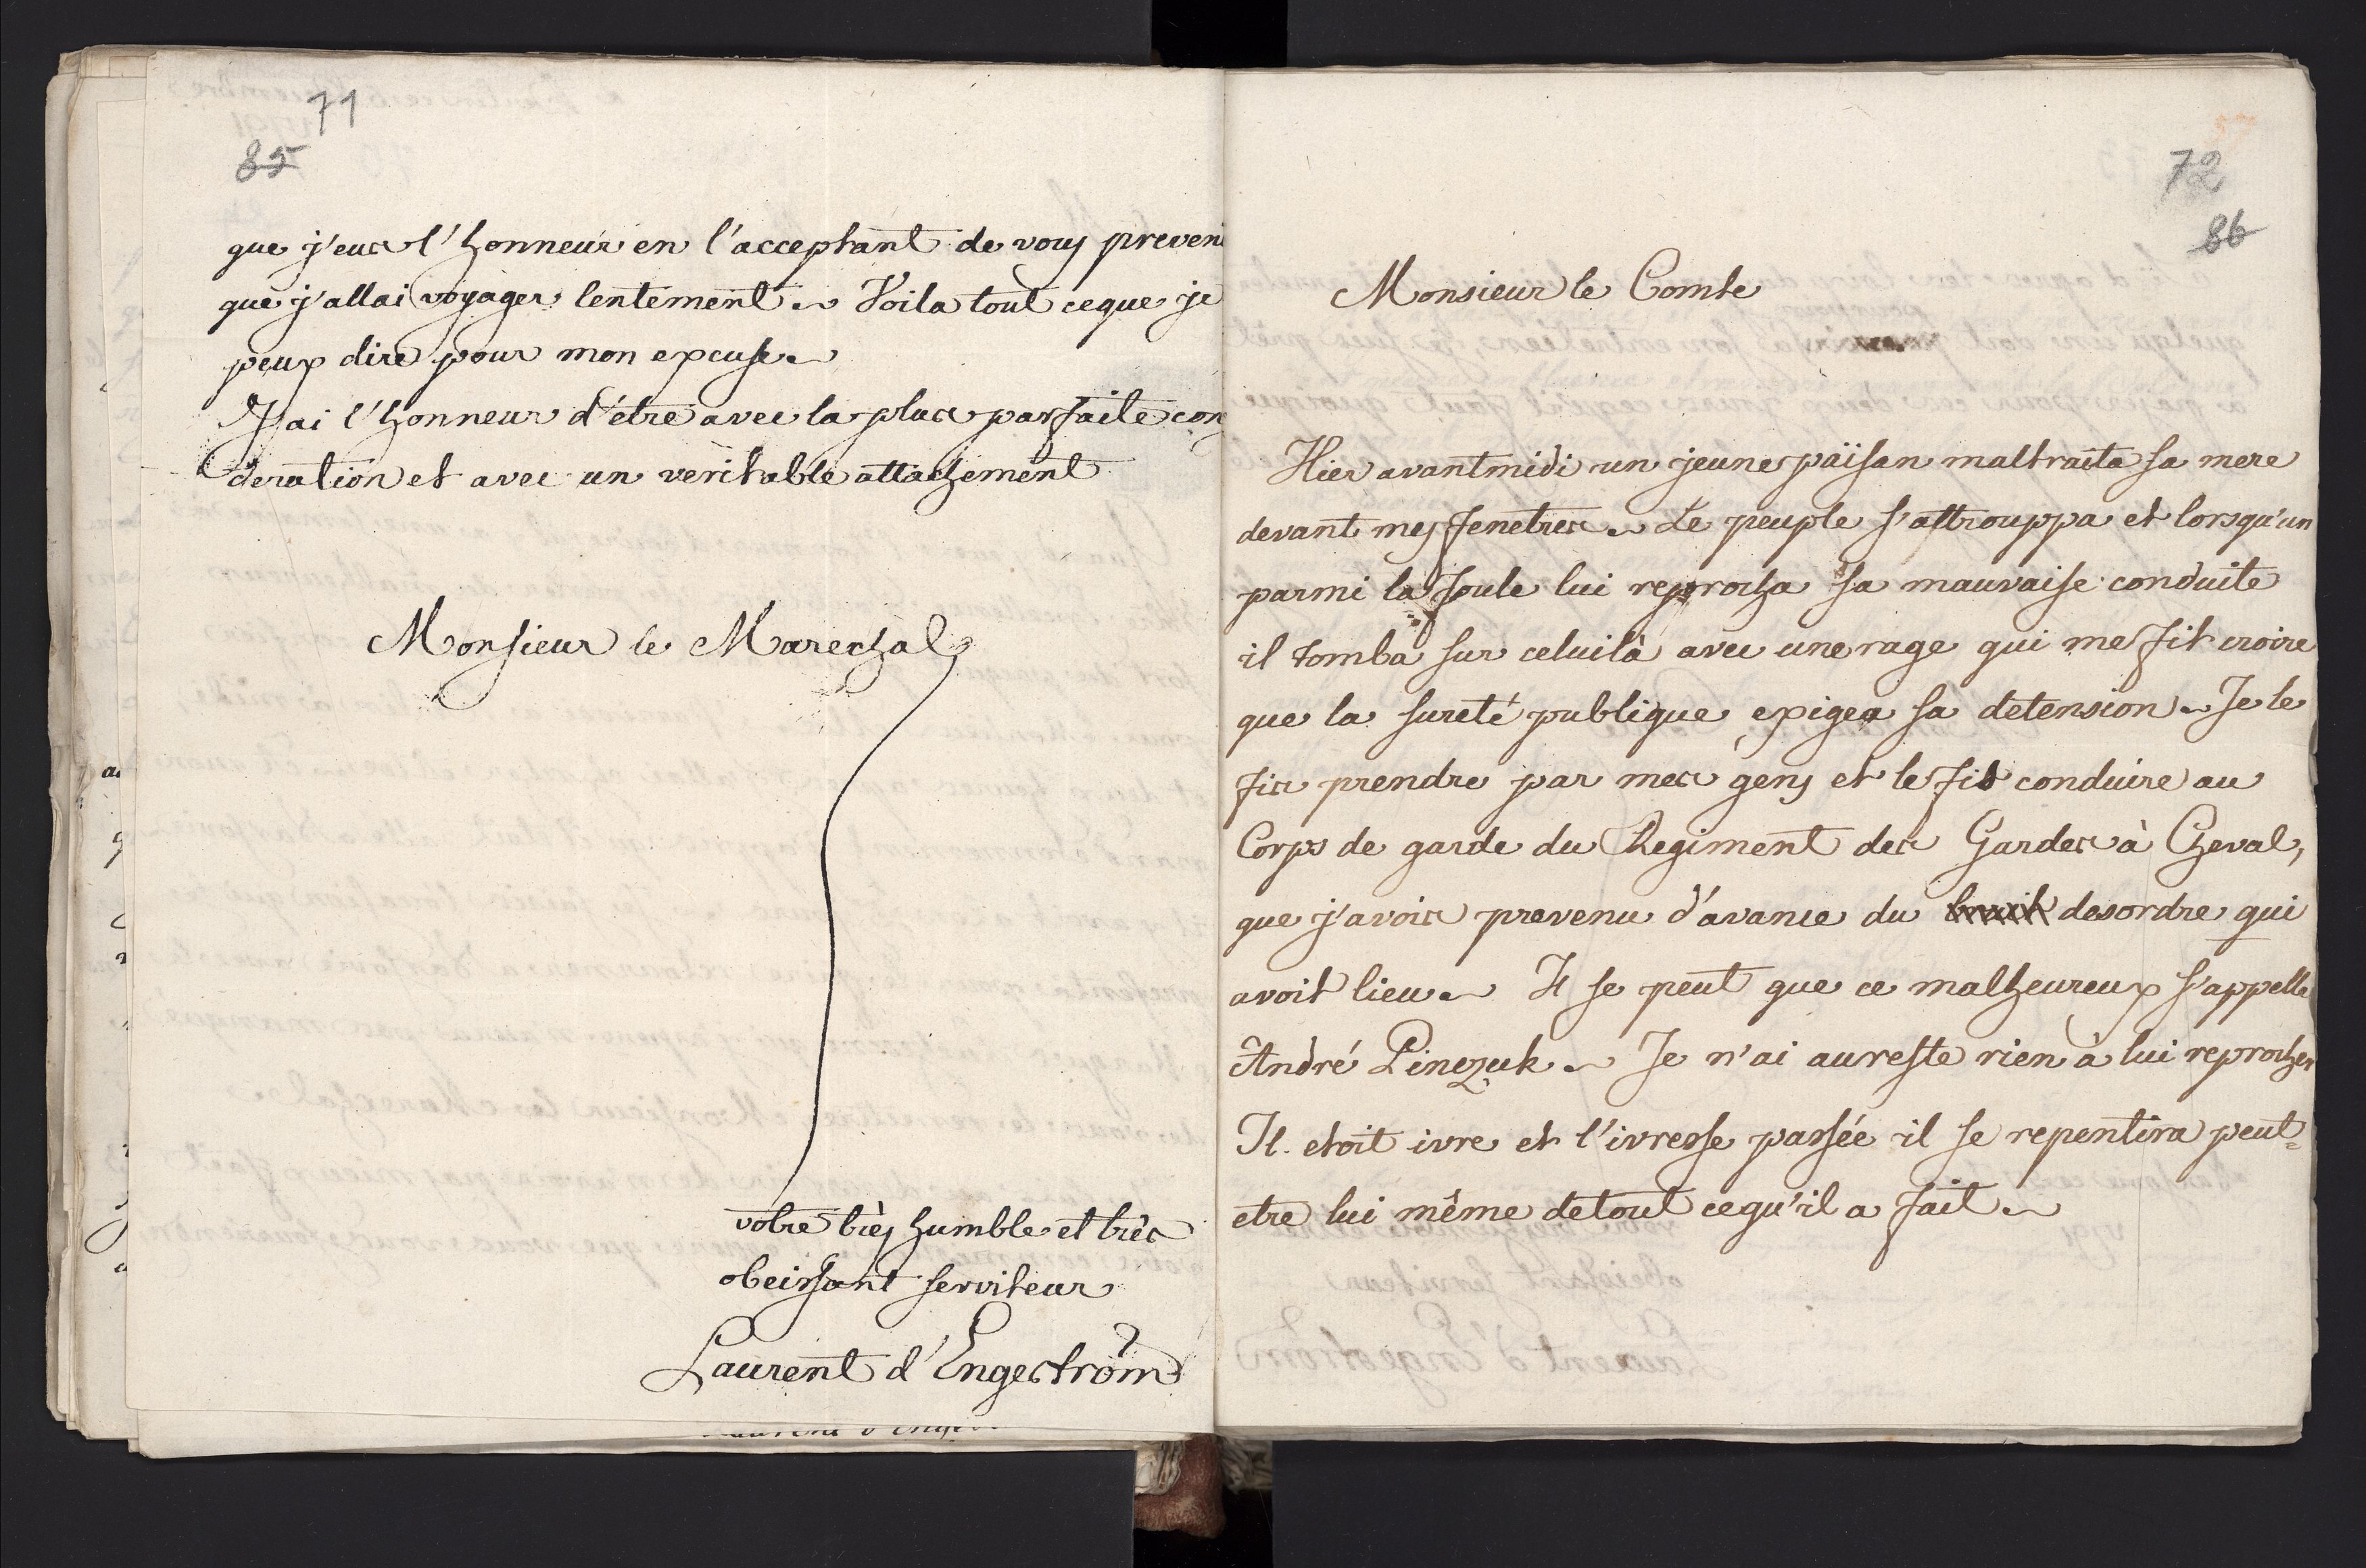 71
85
que j'eus l'honneur en l'acceptant de vous preveni
que j'allai voyager lentement. Voila tout ce que je
peux dire pour mon excuse.
J'ai l'honneur d'être avec la plus parfaite con
deration et avec un veritable attachement
Monsieur le Marechal
votre très humble et très
obeissant serviteur
Laurent d'Engeström
72
86
Monsieur le Comte
Hier avantmidi un jeune païsan maltraita sa mere
devant mes fenetres. Le peuple s'attrouppa et lorsqu'un
parmi la foule lui reprocha sa mauvaise conduite
il tomba sur celuilà avec une rage qui me fit croire
que la sureté publique exigea sa detension. Je le
fis prendre par mes gens et le fis conduire au
Corps de garde du Regiment des Gardes à Cheval,
que j'avois prevenu d'avance du bruit desordre qui
avoit lieu. Il se peut que ce malheureux s'appelle
André Pinczuk. Je n'ai aureste rien à lui reprocher
Il etoit ivre et l'ivresse passée il se repentira peut=
etre lui même de tout ce qu'il a fait.